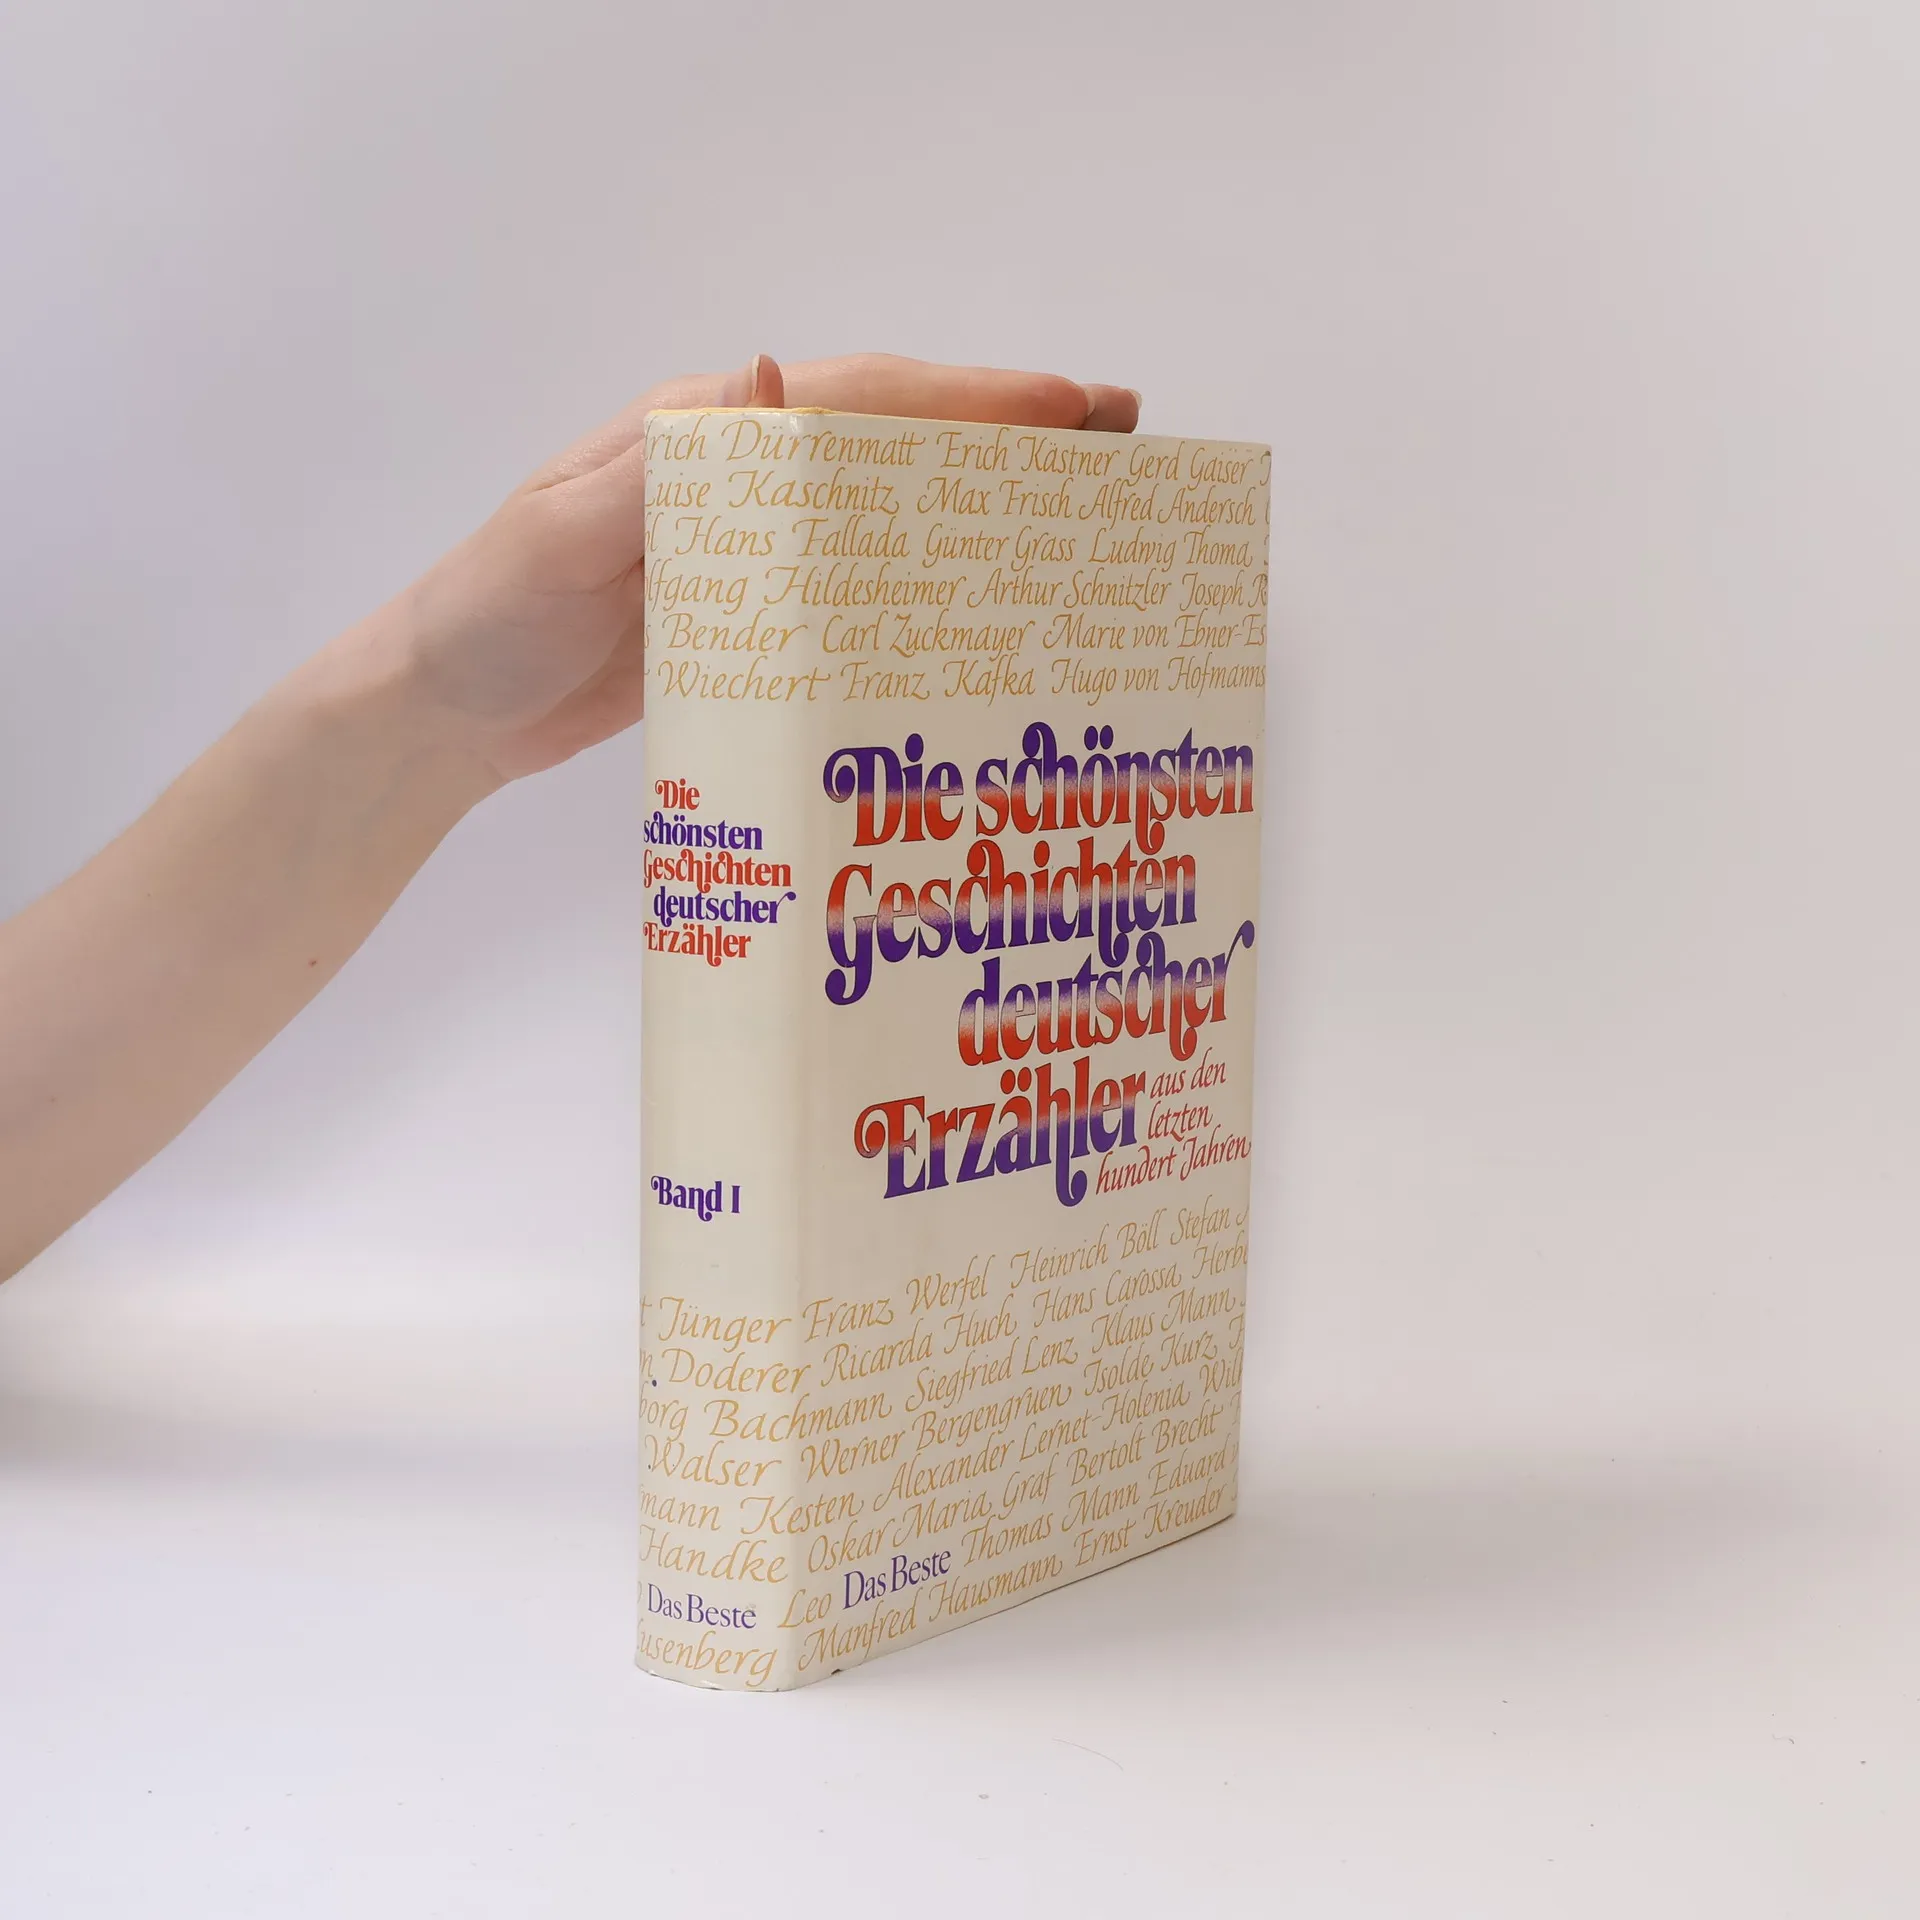 Dürrenmatt Erich Kästner Gerd Gaiser
Luise Kaschnitz Max Frisch Alfred Andersch
Hans Fallada Günter Grass Ludwig Thoma
Hildesheimer Arthur Schnitzler Joseph
Bender Carl Zuckmayer Marie von Ebner-Es
Wiechert Franz Kafka Hugo von Hofmanns
Die
schönsten
Geschichten
deutscher
Erzähler
Band I
Die schönsten
Geschichten
deutscher
Erzähler
aus den
letzten
hundert Jahren
Jünger Franz Werfel Heinrich Böll Stefan
Doderer Ricarda Huch Hans Carossa Herbe
Bachmann Siegfried Lenz Klaus Mann
Walser Werner Bergengruen Isolde Kurz
mann Kesten Alexander Lernet-Holenia Wil
Handke Oskar Maria Graf Bertolt Brecht
Das Beste Leo Das Beste Thomas Mann Eduard
usenberg Manfred Hausmann Ernst Kreuder